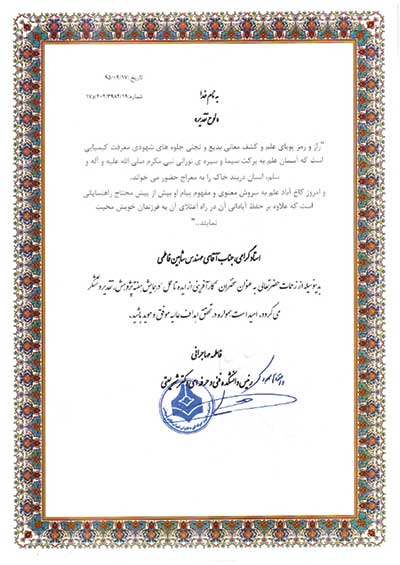 تاریخ: ۹۵/۰۹/۱۷
شماره: ۱۷ذ/۲۰۲/۳۹۸۲/۱۹
به نام خدا
«لوح تقدیر»
"راز و رمز پویای علم و کشف معانی بدیع و تجلی جلوه های شهودی معرفت کیمیایی
است که آسمان علم به برکت سیما و سیره ی نورانی نبی مکرم صلی الله علیه و آله و
سلم، انسان دربند خاک را به معراج حضور می خواند.
و امروز کاخ آباد علم به سروش معنوی و مفهوم پیام او بیش از پیش محتاج راهنمایانی
است که علاوه بر حفظ آبادانی آن در راه اعتلای آن به فرزندان خویش محبت
نمایند..."
استاد گرامی، جناب آقای مهندس شاهین فاطمی
بدینوسیله از زحمات حضرتعالی به عنوان سخنران "کارآفرینی از ایده تا عمل" در همایش هفته پژوهش، تقدیر و تشکر
می گردد، امید است همواره در تحقق اهداف عالیه موفق و موید باشید.
فاطمه مهاجرانی
رئیس دانشکده فنی و حرفه ای دکتر شریعتی